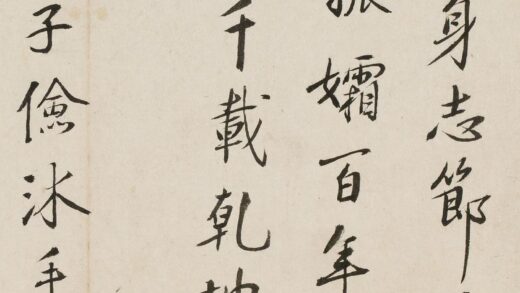 身志節
孀百年
千載乾坤
子儉冰手